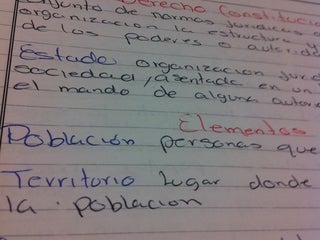 Derecho Constitucio
conjunto de normas jurídicas
organización la estructura y
de los poderes o autorida
Estado organización jurí
sociedad, asentada en un
el mando de alguna autori
Elementos
Población personas que
Territorio lugar donde
la población